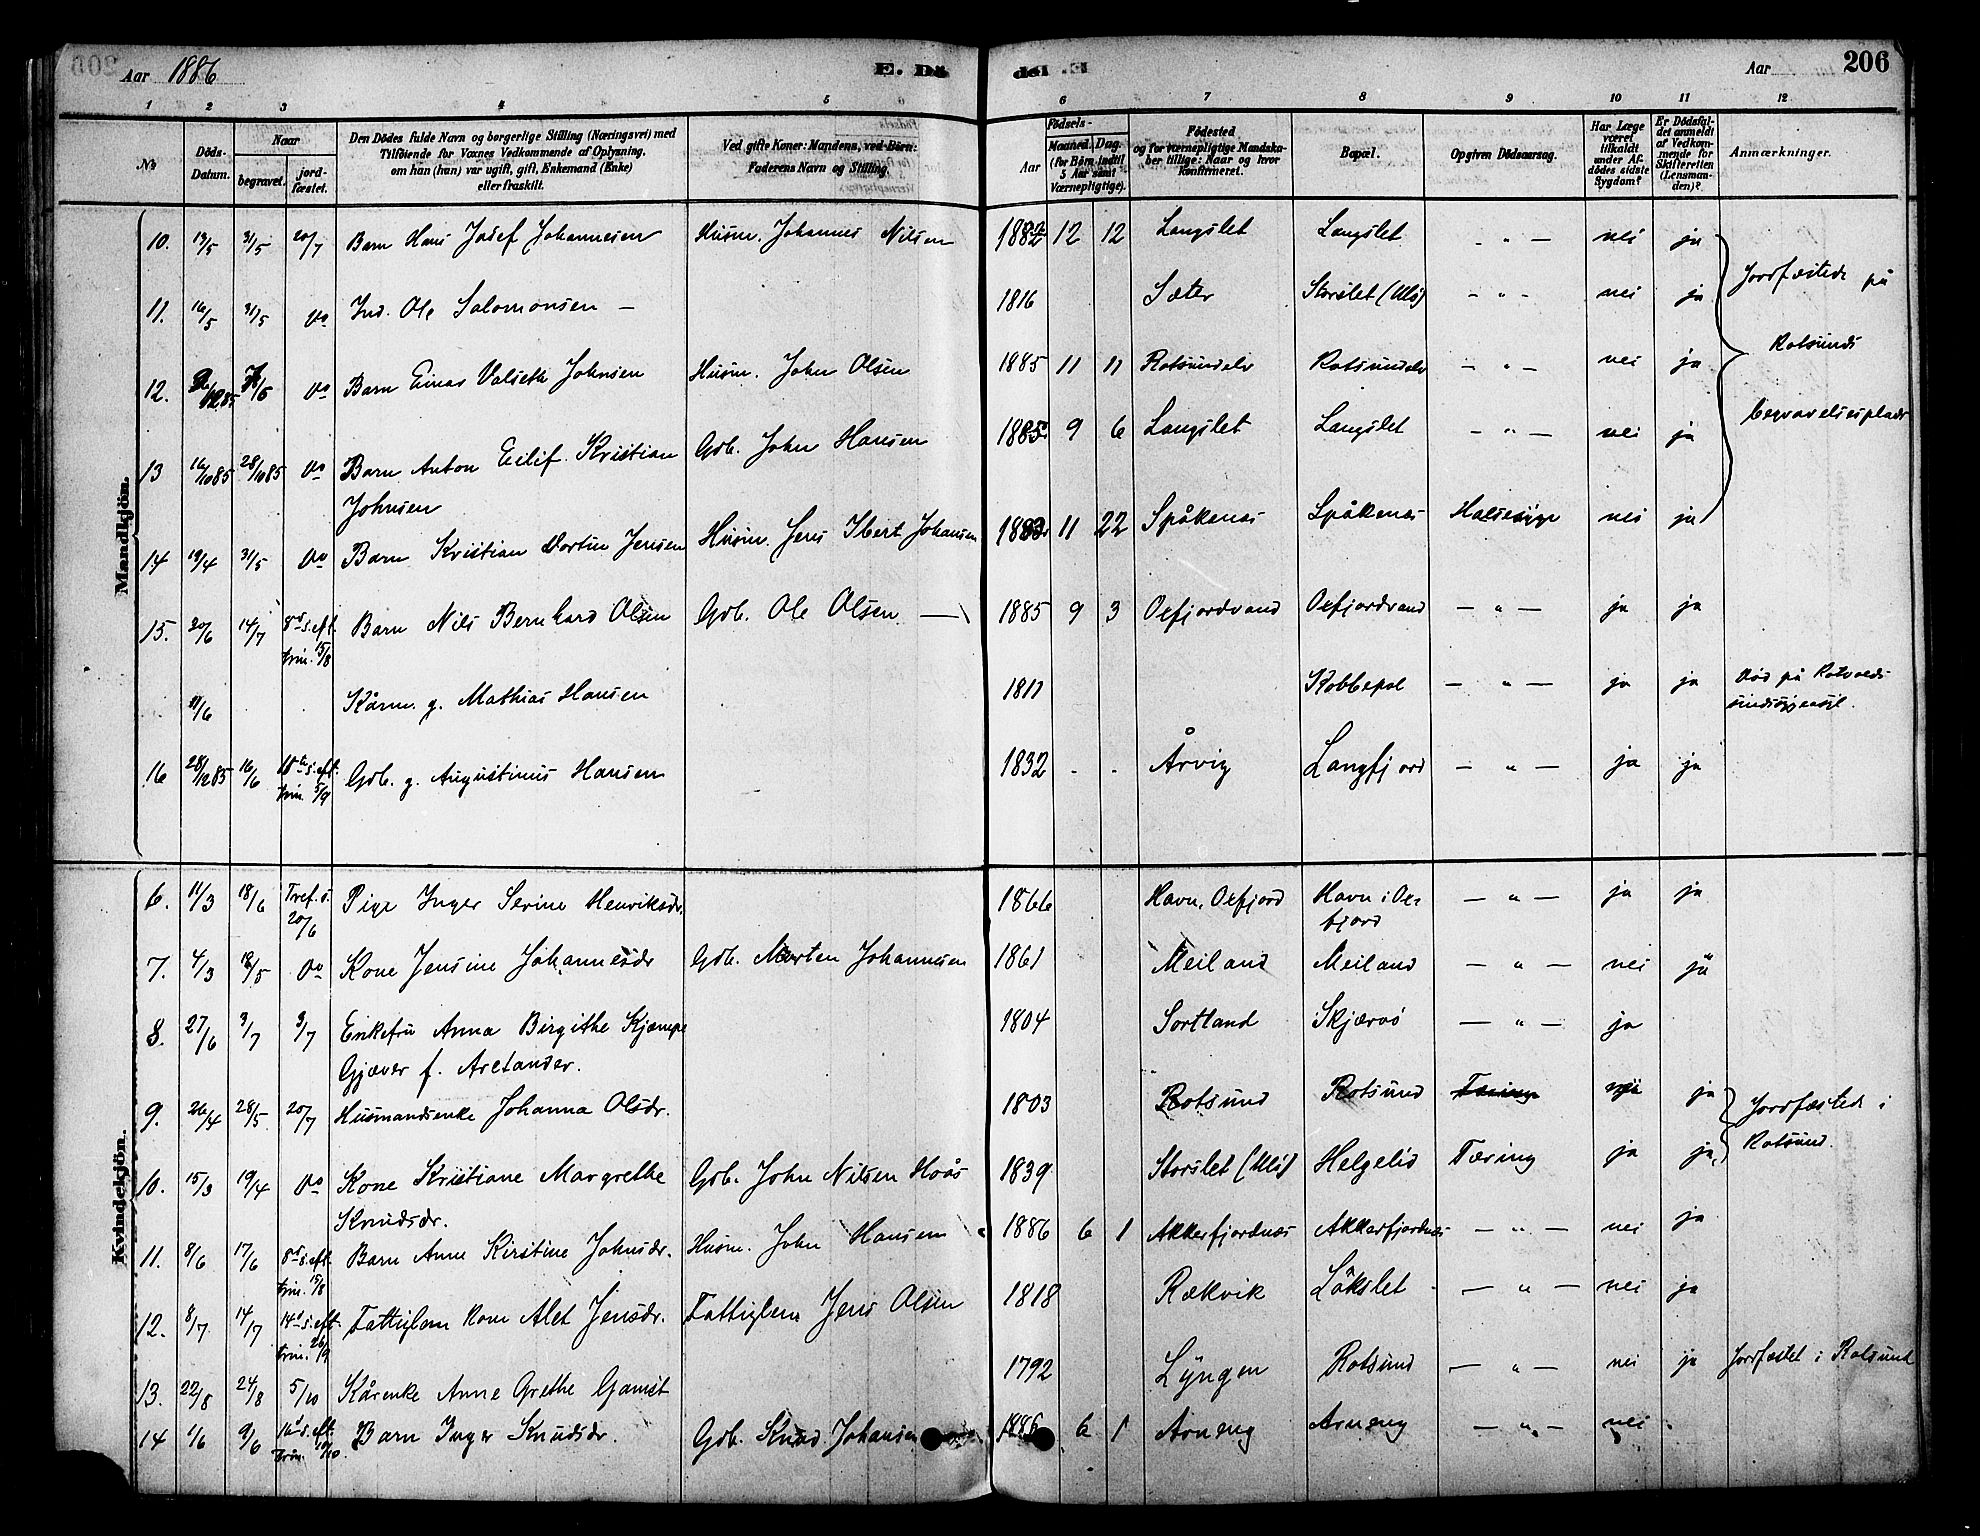 Aar 1886
E. Dö
del .E
Aar
206
1 2 3 4 5 6 7 8 9 10 11 12
No
Döds-Datum.
Naar
begravet.
jord-fæstet.
Den Dödes fulde Navn og borgerlige Stilling (Næringsvei) med
Tilföiende for Voxnes Vedkommende af Oplysning,
om han (hun) var ugift, gift, Enkemand (Enke)
eller fraskilt.
Ved gifte Koner: Mandens, ved Börn:
Faderens Navn og Stilling.
Födsels-
Aar
Maaned. Dag.
(for Börn indtil
5 Aar samt
Værnepligtige).
Födested
og for værnepligtige Mandska-
ber tillige: Naar og hvor
Konfirmeret.
Bopæl.
Opgiven Dödsaarsag.
Har Læge
været
tilkaldt
under Af-
dödes sidste
Sygdom?
Er Dödsfal-
det anmeldt
af Vedkom-
mende for
Skifteretten
(Lensman-
den)?
Anmærkninger.
Mandkjön.
10. 19/5 31/5 20/7 Barn Hans Josef Johannesen Husm. Johannes Nilsen 12 12 Langslet Langslet - " - nei ja
Jordfæstede på
11. 16/5 31/5 do Ind. Ole Salomonsen — 1816 Sæter Storslet (Ulö) - " - nei ja
Rotsunds
12. do Barn Einar Valseth Johnsen Husm. John Olsen 1885 11 11 Rotsundelv Rotsundelv - " - nei ja
begravelsesplads
13 16/10 85 28/10 85 do Barn Anton Eilif Kristian Gdb. John Hansen 1885 9 6 Langslet Langslet - " - nei ja
Johnsen
14 19/4 31/5 do Barn Kristian Dortin Jensen Husm. Jens Ibert Johansen 11 22 Spåkenæs Spåkenæs Halsesyge nei ja
15. 20/6 14/7 8d s. eft. Barn Nils Bernhard Olsen Gdb. Ole Olsen — 1885 9 3 Oxfjordvand Oxfjordvand - " - ja ja
trin. 15/8
11/6 Kårm. g. Mathias Hansen 1811 Kobbepol - " - ja ja Död på Rotvolds
sindssygeasyl.
16 28/12 85 16/6 s. eft. Gdb. g. Augustinus Hansen 1832 . . Årvig Langfjord - " - ja ja
trin. 5/9
Kvindekjön.
6. 11/3 18/6 Tref. s. Pige Inger Serine Henriksdr. 1866 Havn, Oxfjord Havn i Ox- - " - ja ja
20/6 fjord
7. 4/3 18/5 do Kone Jensine Johannesdr Gdb. Morten Johannesen 1861 Meiland Meiland - " - nei ja
8. 27/6 3/7 3/7 Enkefru Anna Birgithe Kjæmpe 1804 Sortland Skjærvö - " - ja
Gjæver f. Aretander.
9. 26/4 28/5 20/7 Husmandsenke Johanna Olsdr. 1803 Rotsund Rotsund Tæring ja Jordfæstede i
Rotsund.
10. 15/3 19/4 do Kone Kristiane Margrethe Gdb. John Nilsen Hoås 1839 Storslet (Ulö) Helgelid Tæring ja ja
Knudsdr.
11. 8/6 17/6 8d s. eft. Barn Anne Kirstine Johnsdr. Husm. John Hansen 1886 6 1 Akkerfjordnæs Akkerfjordnæs - " - nei ja
trin. 15/8
12. 8/7 14/7 14d s. eft. Fattiglem Kone Alet Jensdr. Fattiglem Jens Olsen 1818 Rækvik Lökslet - " - nei ja
trin. 26/9
13. 22/8 24/8 5/10 Kårenke Anne Grethe Gamst 1792 Lyngen Rotsund - " - nei ja Jordfæstet i Rotsund
14 1/6 9/6 16d s. eft. Barn Inger Knudsdr. Gdb. Knud Johansen 1886 6 1 Arneng Arneng - " - nei
trin. 10/10.